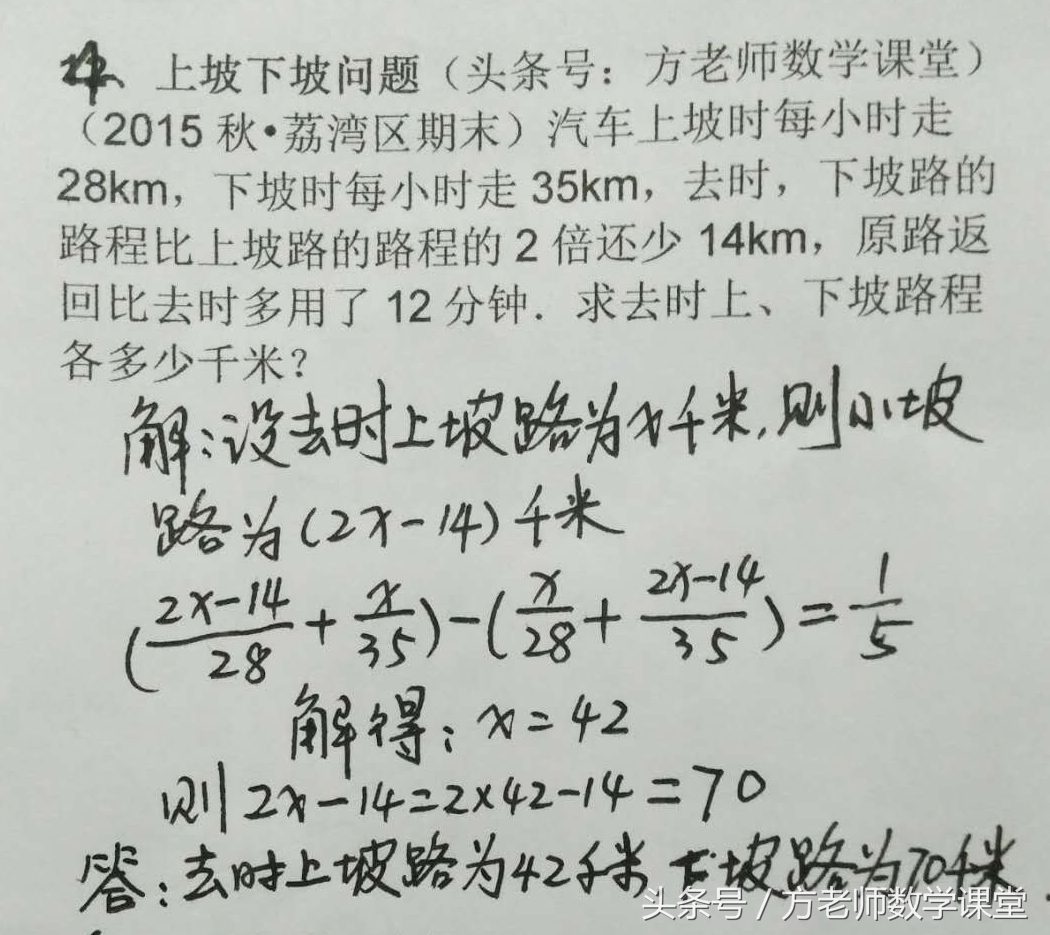 4、上坡下坡问题（头条号：方老师数学课堂）
（2015秋•荔湾区期末）汽车上坡时每小时走
28km，下坡时每小时走35km，去时，下坡路的
路程比上坡路的路程的2倍还少14km，原路返
回比去时多用了12分钟．求去时上、下坡路程
各多少千米？
解：设去时上坡路为x千米，则小坡
路为(2x-14)千米
(\frac{2x-14}{28}+\frac{x}{35})-(\frac{x}{28}+\frac{2x-14}{35})=\frac{1}{5}
解得：x=42
则2x-14=2×42-14=70
答：去时上坡路为42千米 下坡路为70千米.
头条号／方老师数学课堂